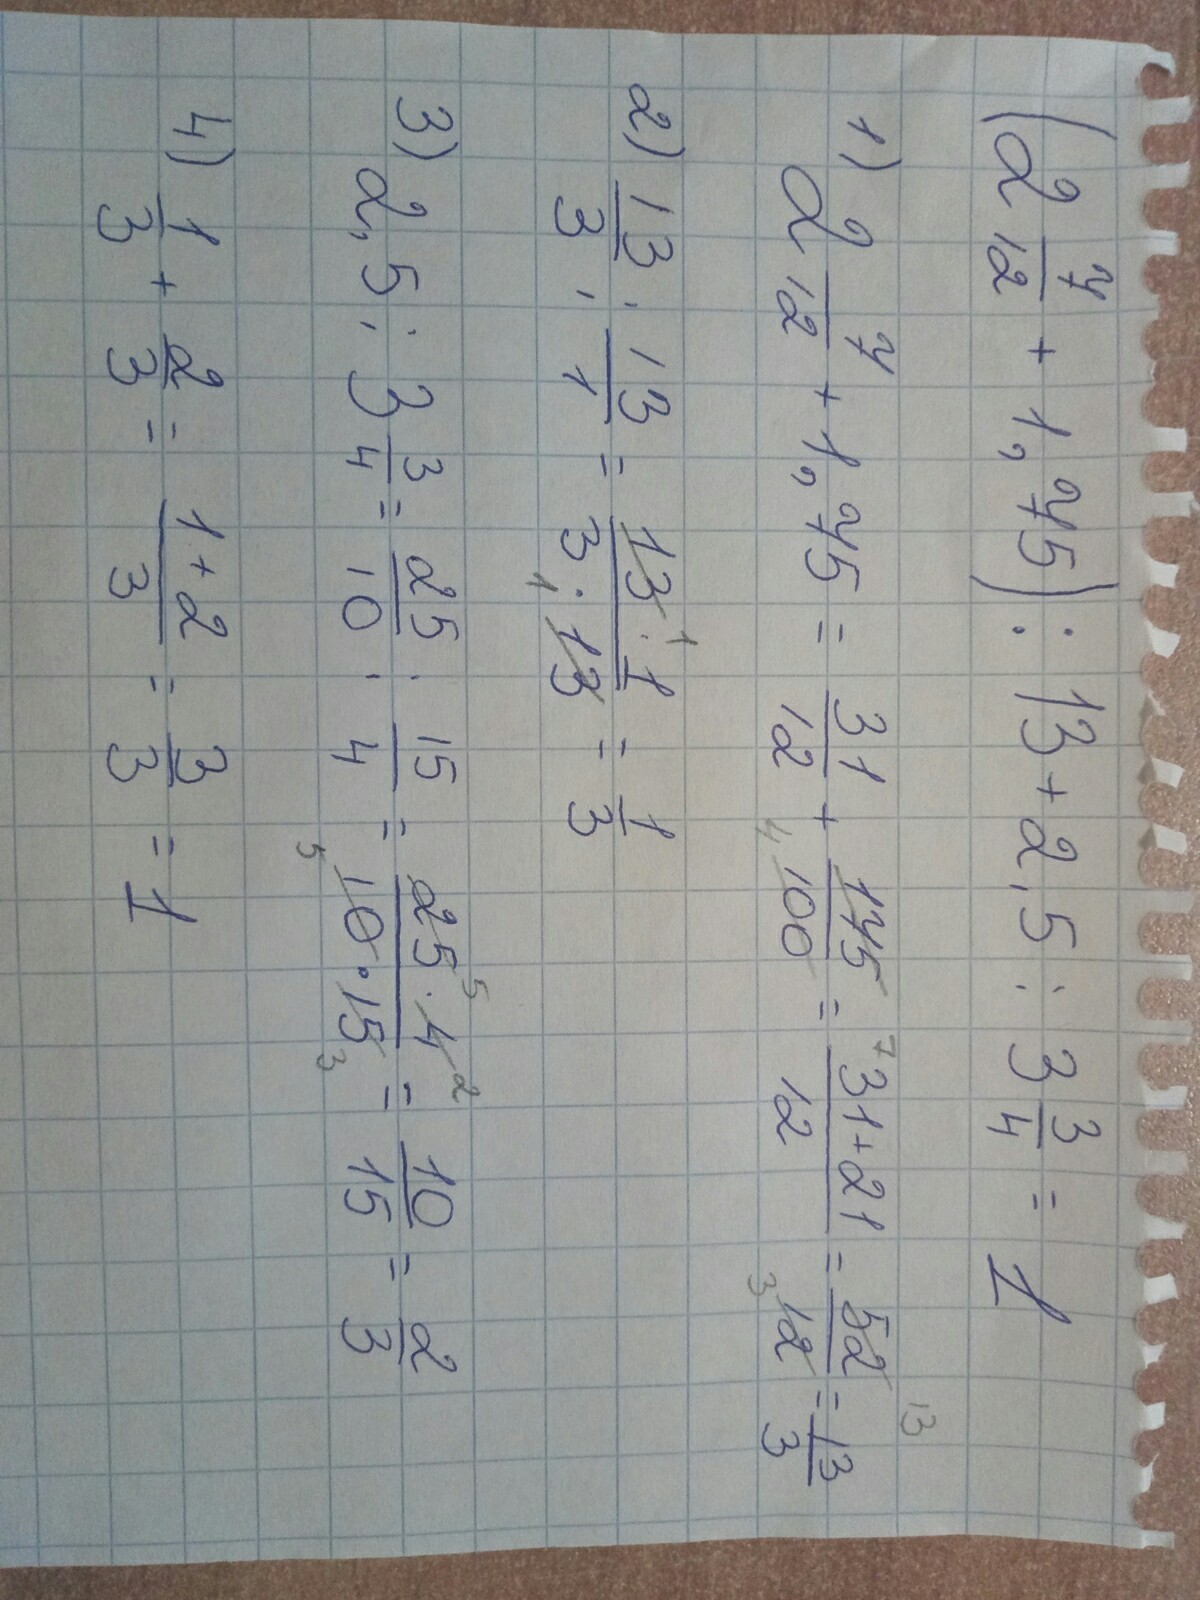 (2 7/12 + 1,75) : 13 + 2,5 : 3 3/4 = 1
1) 2 7/12 + 1,75 = 31/12 + 175/100 = 31+21/12 = 52/12 = 13/3
7 13
4 3
2) 13/3 : 13/1 = 13·1/3·13 = 1/3
1
1
3) 2,5 : 3 3/4 = 25/10 : 15/4 = 25·4/10·15 = 10/15 = 2/3
5 2
5 3
4) 1/3 + 2/3 = 1+2/3 = 3/3 = 1